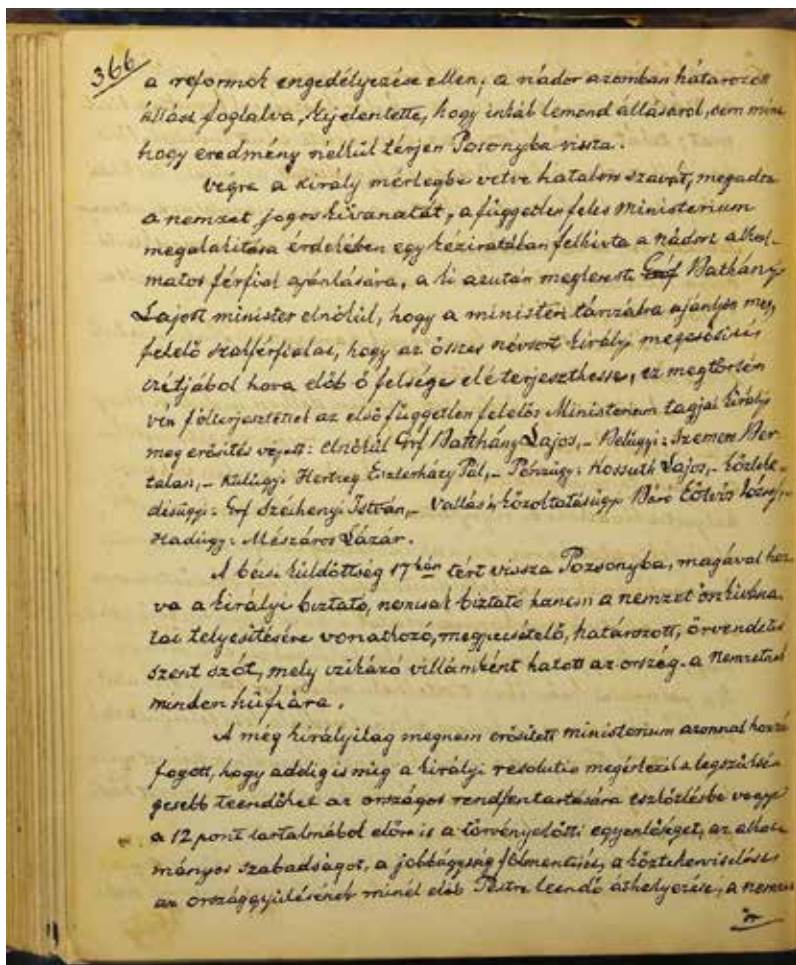 366
a reformok engedélyezése ellen; a nádor azomban hátarozott
állást foglalva, kijelentette, hogy inkáb lemond állásáról, sem mint
hogy eredmény nélkül térjen Posonyba vissza.
Végre a Király mérlegbe vetve hatalom szavát, megadta
a nemzet jogos kivanatát, a független feles Ministerium
megalakitása érdekében egy kéziratában felhivta a nádort alkol-
matos férfiak ajánlására, a ki azután megkereste Gróf Batthány
Lajost minister elnökül, hogy a ministeri tárczákra ajánljon meg
felelő szakférfiakat, hogy az összes névsort királyi megerősités
czéljából hova előb ő felsége elé terjeszthesse, ez megtörtén
vén fölterjesztettek az első független felelős Ministerium tagjai királyi
meg erősités végett: elnökül Grf Batthány Lajos, – Belügyi: Szemere Ber-
talan, – Külügyi Hertzeg Eszterházy Pál, – Pénzügy: Kossuth Lajos, – közleke-
désügyi: Grf Széchenyi István, – Vallás és közoktatásügy Báró Eötvös József, –
Hadügy: Mészáros Lázár.
A bécsi küldöttség 17 kén tért vissza Pozsonyba, magával hoz-
va a királyi biztató, nemcsak biztató hanem a nemzet ön kivána-
tai telyesitésére vonatkozó, megpecsételő, határozott, örvendetes
szent szót, mely czikázó villámként hatott az ország – a nemzetnek
minden hűfiára.
A még királyilag megnem erősitett ministerium azonnal hozzá
fogott, hogy addig is mig a királyi resolutio megérkezik a legszüksé-
gesebb teendőket az országos rendfentartására eszközlésbe vegye
a 12 pont tartalmából előre is a törvényelőtti egyenlőséget, az alkot-
mányos szabadságot, a jobbágyság fölmentését, a közteherviselést
az országgyülésének minél előb Pestre leendő áthelyezése, a nemzet